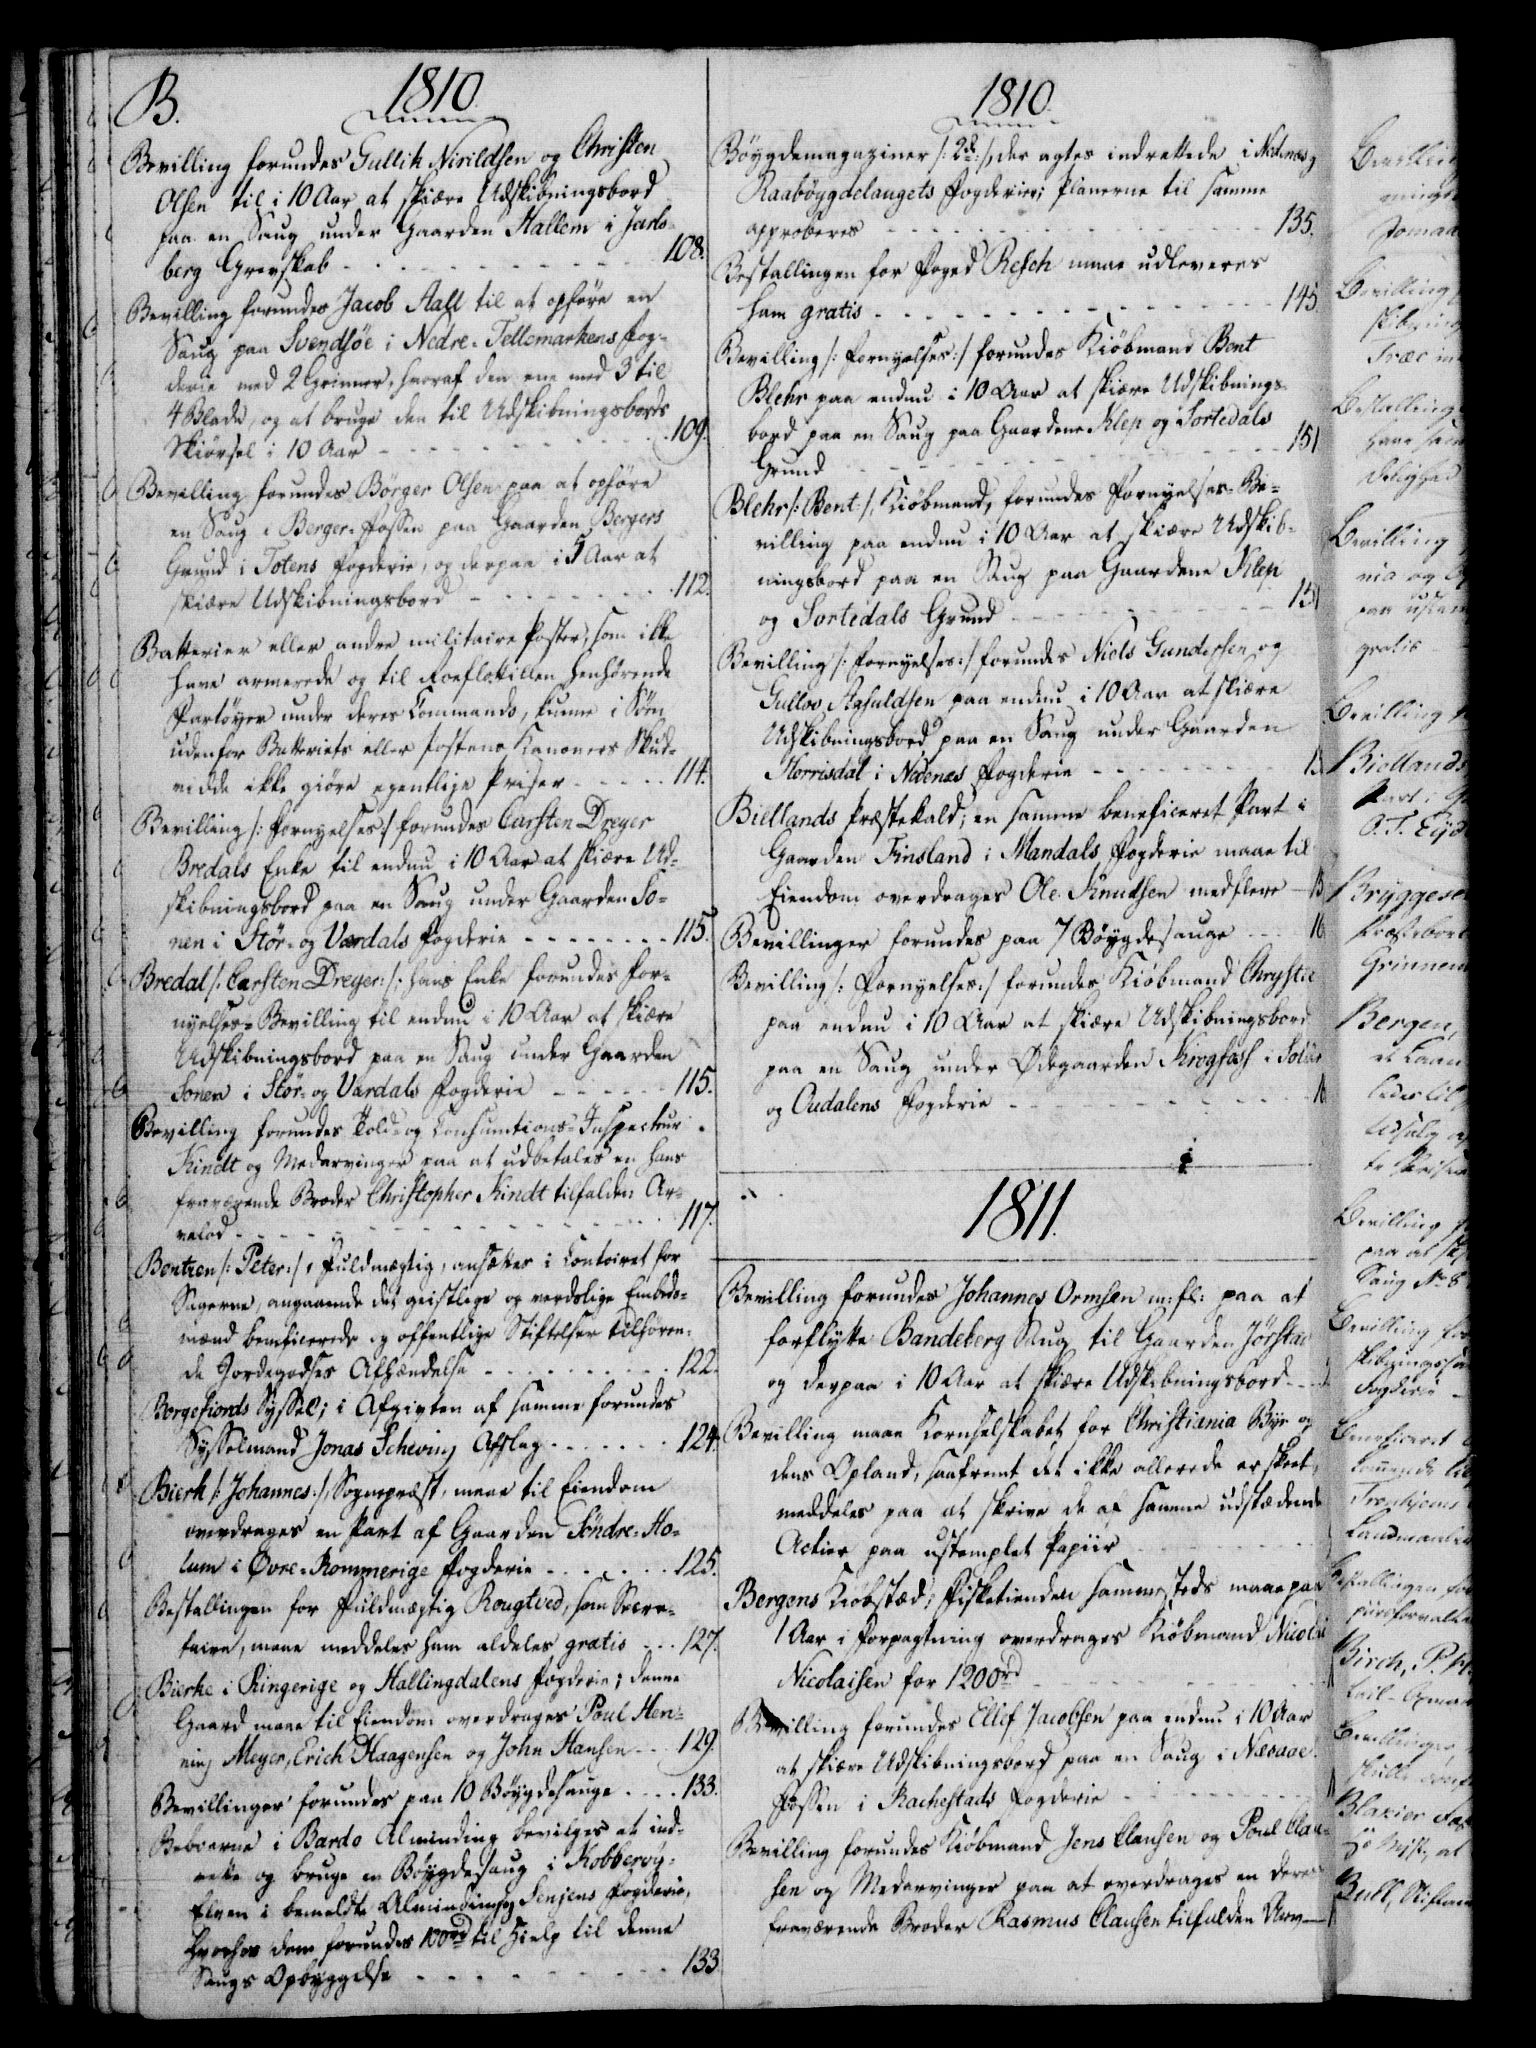 B.
1810.
Bevilling forundes Gullik Nirildsen og Christen
Olsen til i 10 Aar at skiære Udskibningsbord
paa en Saug under Gaarden Hallem i Jarls-
berg Grevskab 108.
Bevilling forundes Jacob Aall til at opføre en
Saug paa Svendsöe i Nedre-Tellemarkens Fog-
derie med 2 Grinner, hvoraf den ene med 3 til
4 Blade, og at bruge den til Udskibningsbords
Skiörsel i 10 Aar 109.
Bevilling forundes Börger Olsen paa at opføre
en Saug i Berger-Fossen paa Gaarden Bergers
Grund i Totens Fogderie, og derpaa i 5 Aar at
skiære Udskibningsbord 112.
Batterier eller andre militaire Poster, som ikke
have armerede og til Roeflotillen henhörende
Fartöyer under deres Commando, kunne i Söen
udenfor Batteriets eller Postens Kanoners Skud-
vidde ikke giöre egentlige Priser 114.
Bevilling /: Fornyelses :/ forundes Carsten Dreyer
Bredals Enke til endnu i 10 Aar at skiære Ud-
skibningsbord paa en Saug under Gaarden So-
nen i Stör- og Værdals Fogderie 115.
Bredal /: Carsten Dreyer :/: hans Enke forundes For-
nyelses-Bevilling til endnu i 10 Aar at skiære
Udskibningsbord paa en Saug under Gaarden
Sonen i Stör- og Værdals Fogderie 115.
Bevilling forundes Told- og Consumtions-Inspecteur
Kindt og Medarvinger paa at udbetales en hans
fraværende Broder Christopher Kindt tilfalden Ar-
velod 117.
Bentzen /: Peter :/, Fuldmægtig, ansættes i Contoiret for
Sagerne, angaaende det geistlige og verdslige Embeds-
mænd beneficerede og offentlige Stiftelser tilhören-
de Jordegodses Afhændelse 122.
Borgefiords Syssel; i Afgiften af samme forundes
Sysselmand Jonas Scheving Afslag 124.
Bierk /: Johannes :/, Sognepræst, maae til Eiendom
overdrages en Part af Gaarden Söndre-Ho-
lum i Øvre-Rommerige Fogderie 125.
Bestallingen for Fuldmægtig Rougtved, som Secre-
taire, maae meddeles ham aldeles gratis 127.
Bierke i Ringerige og Hallingdalens Fogderie; denne
Gaard maae til Eiendom overdrages Poul Hen-
ning Meyer, Erich Haagensen og John Hansen 129.
Bevillinger forundes paa 10 Böygdesauge 133.
Beboerne i Bardo Alminding bevilges at ind-
rette og bruge en Böygdesaug i Kobberöy-
Elven i bemeldte Alminding Senjens Fogderie,
hvorhos dem forundes 100 rd til Hielp til denne
Saugs Opbyggelse 133
1810.
Böygdemagaziner /: 2de :/, der agtes indrettede i Nedenæs og
Raabøygdelaugets Fogderier; Planerne til samme
approberes 135.
Bestallingen for Foged Resch maae udleveres
ham gratis 145
Bevilling /: Fornyelses :/ forundes Kiöbmand Bent
Blehr paa endnu i 10 Aar at skiære Udskibnings-
bord paa en Saug paa Gaardene Klep og Sortedals
Grund 151
Blehr /: Bent :/, Kiöbmand, forundes Fornyelses-Be-
villing paa endnu i 10 Aar at skiære Udskib-
ningsbord paa en Saug paa Gaardene Klep
og Sortedals Grund 151
Bevilling /: Fornyelses :/ forundes Niels Gundersen og
Gullov Aasuldsen paa endnu i 10 Aar at skiære
Udskibningsbord paa en Saug under Gaarden
Herrisdal i Nedenæs Fogderie
Biellands Præstekald; en samme beneficeret Part i
Gaarden Finsland i Mandals Fogderie maae til
Eiendom overdrages Ole Knudsen med flere
Bevillinger forundes paa 7 Böygdesauge
Bevilling /: Fornyelses :/ forundes Kiöbmand Chrystie
paa endnu i 10 Aar at skiære Udskibningsbord
paa en Saug under Ødegaarden Krogfoss i Solöer
og Oudalens Fogderie
1811.
Bevilling forundes Johannes Ormsen m: fl: paa at
forflytte Bandeberg Saug til Gaarden Jörstad
og derpaa i 10 Aar at skiære Udskibningsbord
Bevilling maae Kornselskabet for Christiania Bye og
dens Opland, saafremt det ikke allerede er skeet,
meddeles paa at skrive de af samme udstædende
Actier paa ustemplet Papiir
Bergens Kiöbstæd; Fisketienden sammesteds maae paa
1 Aar i Forpagtning overdrages Kiöbmand Nicolai
Nicolaisen for 1200 rd
Bevilling forundes Ellef Jacobsen paa endnu i 10 Aar
at skiære Udskibningsbord paa en Saug i Næsaae-
Fossen i Rachestads Fogderie
Bevilling forundes Kiöbmand Jens Clausen og Poul Clau-
sen og Medarvinger paa at overdrages en deres
fraværende Broder Rasmus Clausen tilfalden Arv
Bevilling
Bevilling
Biellands
O. T.
Bergen,
Saug No 8
Birch, P.
Bull,